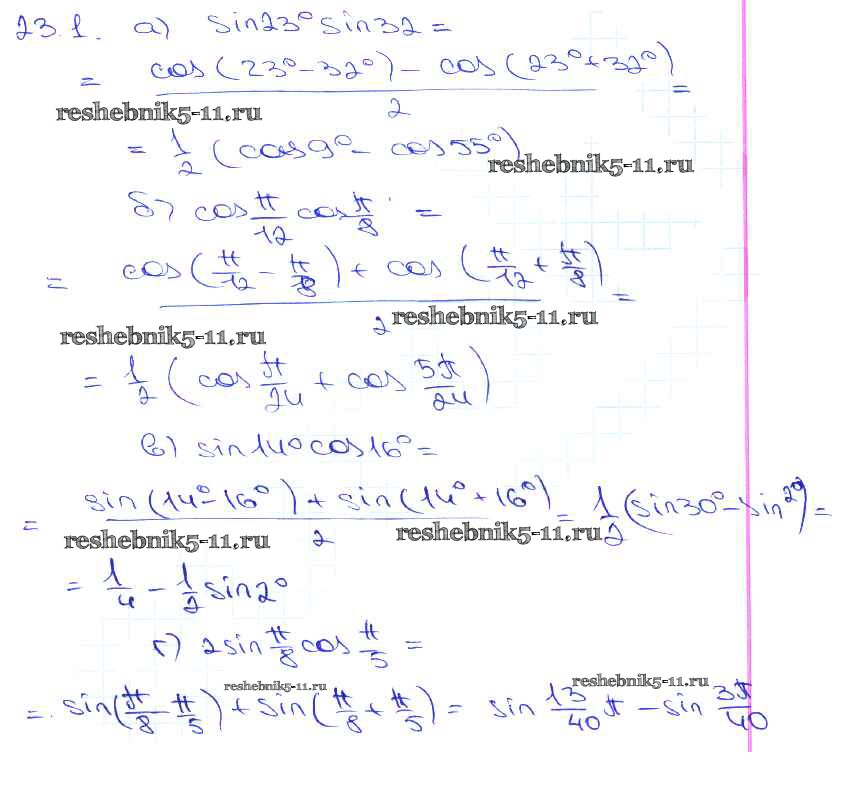 23.1. а) sin23° sin32 =
= (cos(23°-32°) - cos(23°+32°))/2 =
reshebnik5-11.ru
= 1/2 (cos9° - cos55°)
reshebnik5-11.ru
б) cos π/12 cos π/8 =
= (cos(π/12 - π/8) + cos(π/12 + π/8))/2 =
reshebnik5-11.ru
reshebnik5-11.ru
= 1/2 (cos π/24 + cos 5π/24)
в) sin14° cos16° =
= (sin(14°-16°) + sin(14°+16°))/2 = 1/2 (sin30° - sin2°) =
reshebnik5-11.ru reshebnik5-11.ru
= 1/4 - 1/2 sin2°
г) 2sin π/8 cos π/5 =
reshebnik5-11.ru reshebnik5-11.ru
= sin(π/8 - π/5) + sin(π/8 + π/5) = sin 13/40 π - sin 3π/40